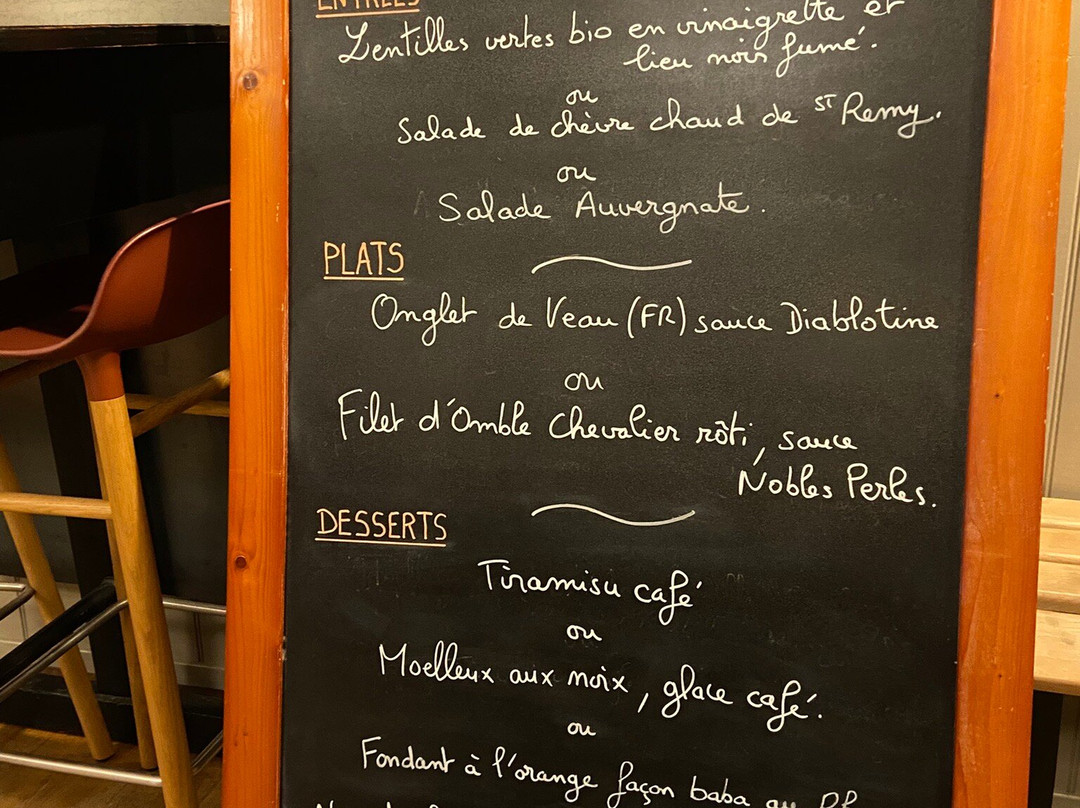 ENTRÉES
Lentilles vertes bio en vinaigrette et
lieu noir fumé.
ou
Salade de chèvre chaud de ST Remy.
ou
Salade Auvergnate.
PLATS
Onglet de Veau (FR) sauce Diablotine
ou
Filet d'Omble Chevalier rôti, sauce
Nobles Perles.
DESSERTS
Tiramisu café
ou
Moelleux aux noix, glace café.
ou
Fondant à l'orange façon baba au